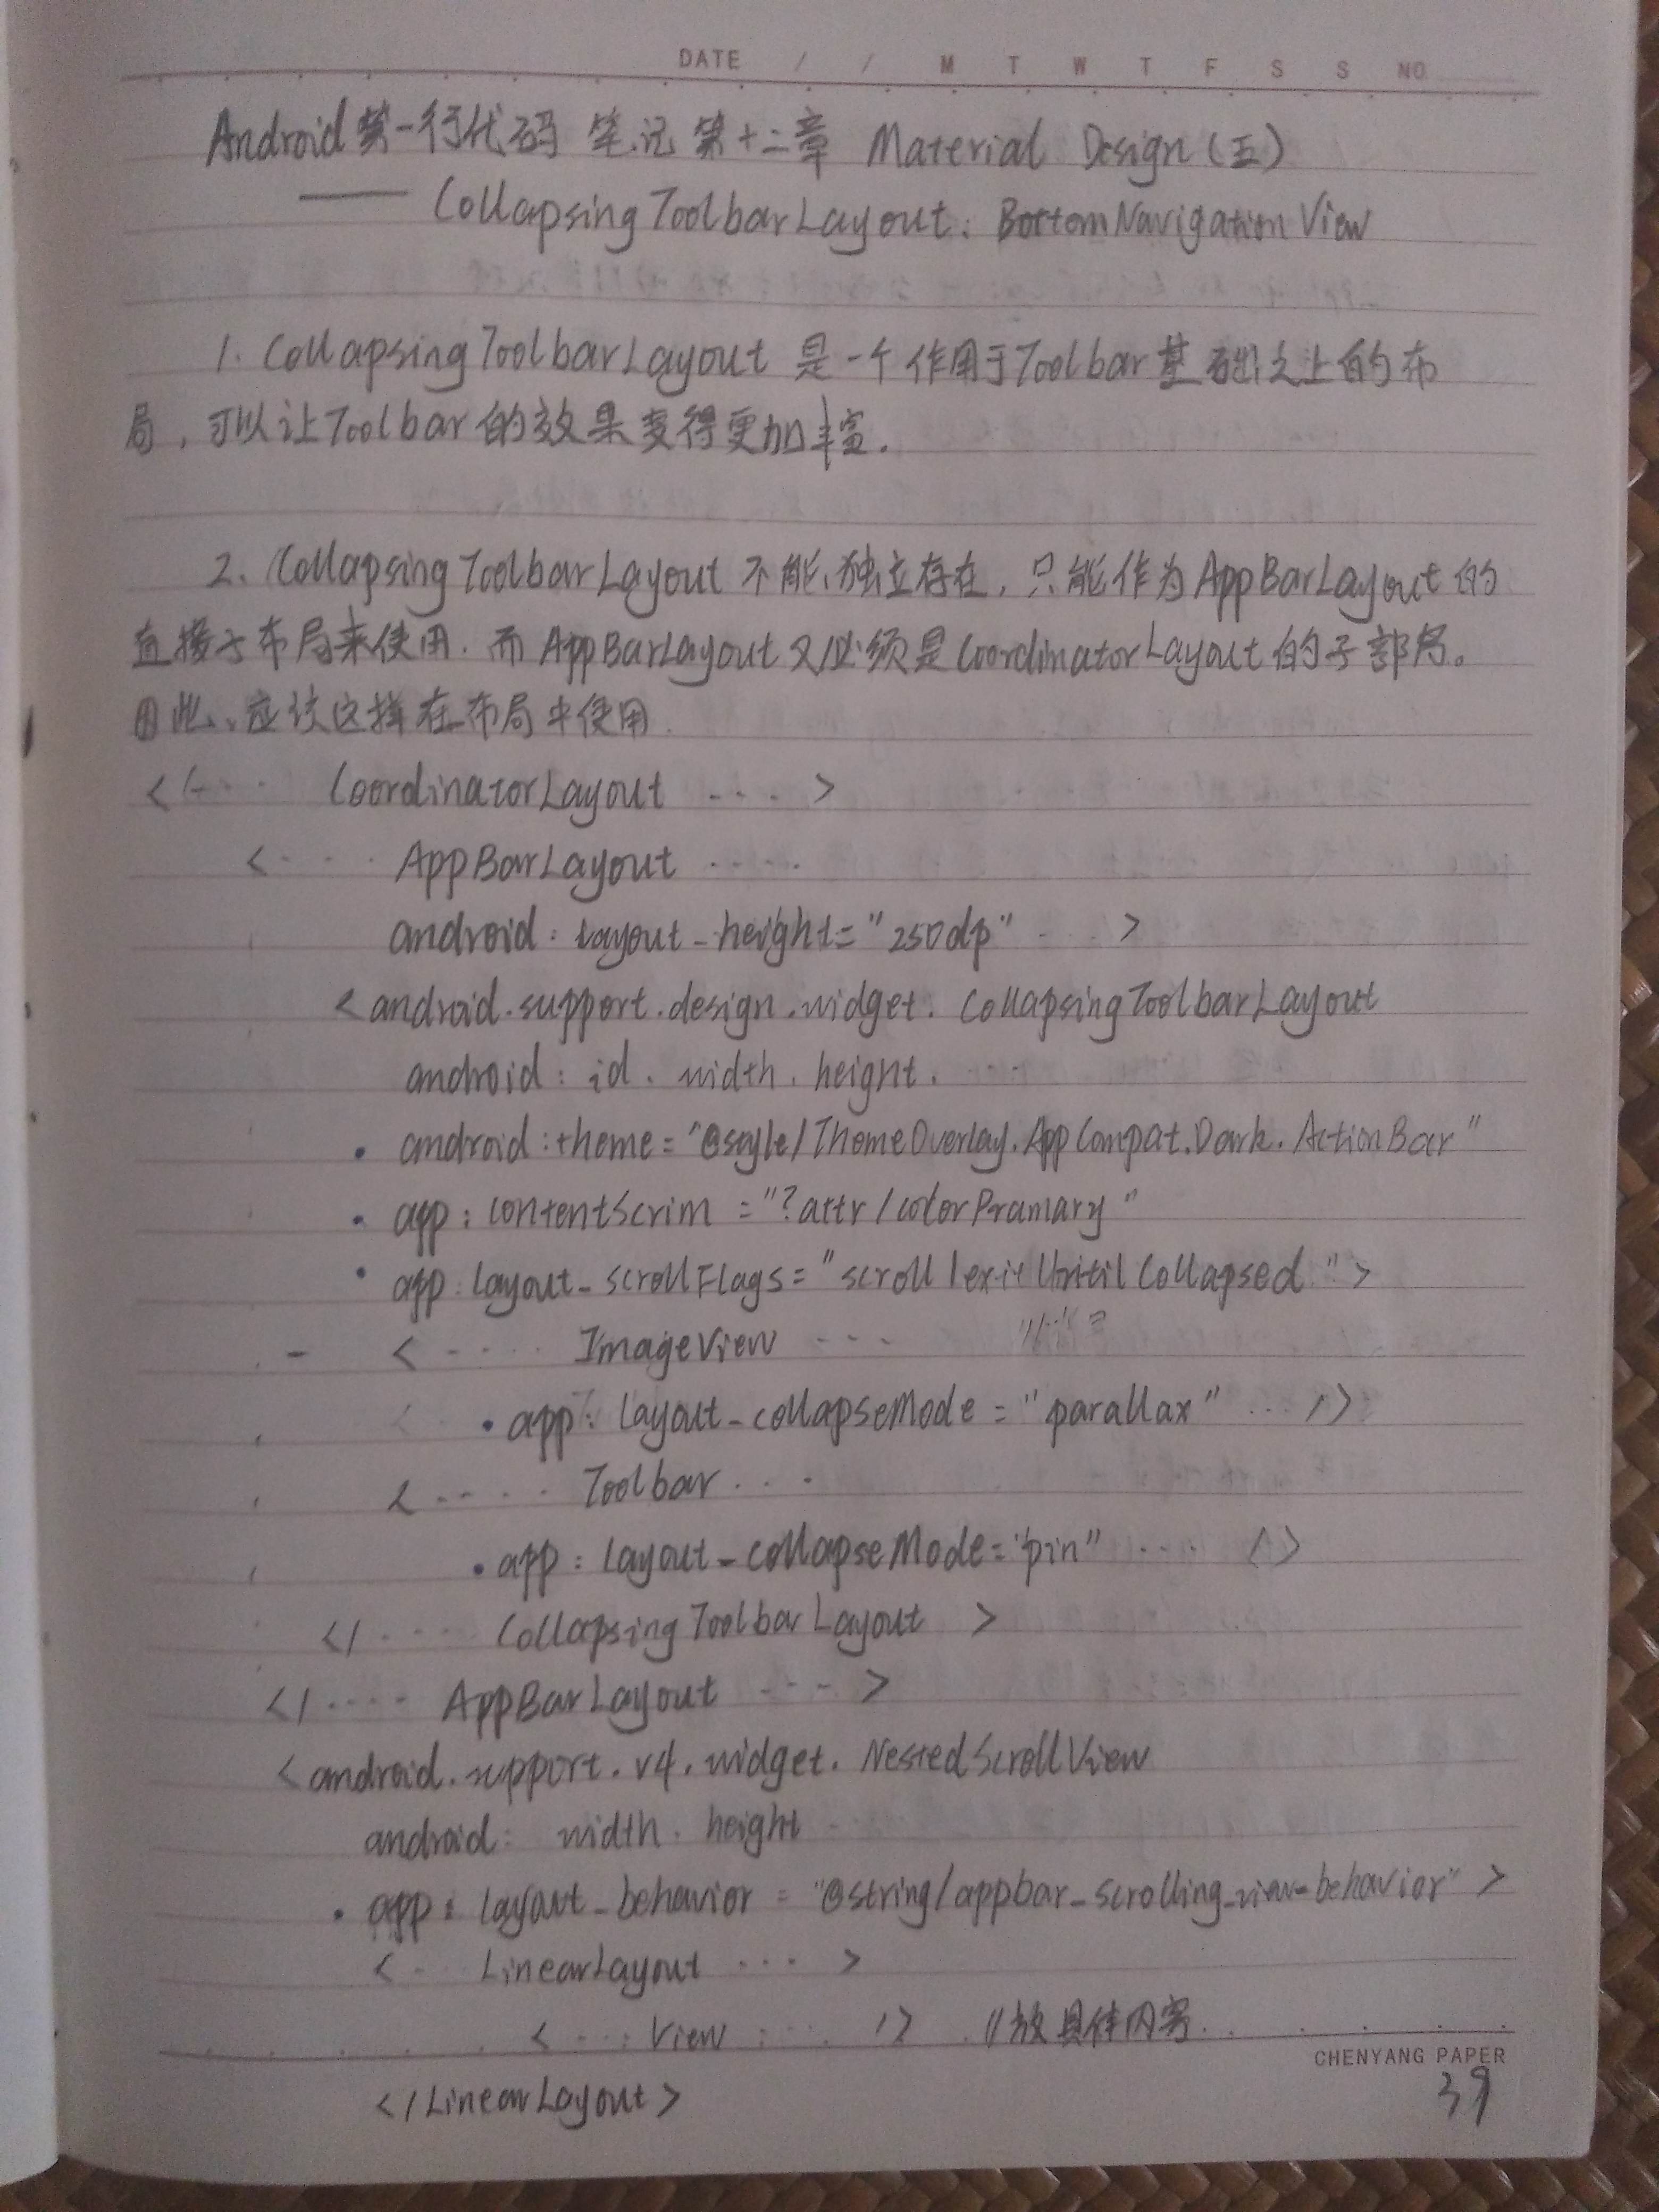 DATE / / M T W T F S S NO
Android第一行代码 笔记 第十二章 Material Design(五)
—— CollapsingToolbarLayout. BottomNavigationView
1. CollapsingToolbarLayout 是一个作用于Toolbar基础之上的布
局,可以让Toolbar的效果变得更加丰富.
2. CollapsingToolbarLayout 不能独立存在,只能作为AppBarLayout的
直接子布局来使用.而AppBarLayout又必须是CoordinatorLayout的子部局。
因此、应该这样在布局中使用.
< ... CoordinatorLayout ... >
< ... AppBarLayout ....
android:layout_height="250dp" ... >
<android.support.design.widget.CollapsingToolbarLayout
android:id.width.height. ...
• android:theme="@style/ThemeOverlay.AppCompat.Dark.ActionBar"
• app:contentScrim="?attr/colorPramary"
• app:layout_scrollFlags="scroll|exitUntilCollapsed">
- < ..... ImageView ...
• app:layout_collapseMode="parallax" ... />
< ..... Toolbar ...
• app:layout_collapseMode="pin" .... />
</ .... CollapsingToolbarLayout >
</ .... AppBarLayout ... >
<android.support.v4.widget.NestedScrollView
android: width.height
• app:layout_behavior="@string/appbar_scrolling_view_behavior">
< .. LinearLayout ... >
< ... View .... /> //放具体内容.
CHENYANG PAPER
</LinearLayout>
39